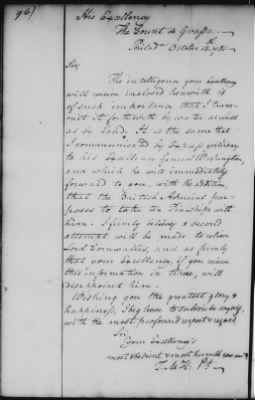 96)
His Excellency
The Count de Grasse.
Philada October 1781
Sir
The intelligence your Excellency
will receive inclosed herewith is
of such importance that I trans-
mit it forthwith by water as well
as by land. It is the same that
I communicated by Express yesterday
to his Excellency General Washington,
and which he will immediately
forward to you, with the addition,
that the British Admiral pur-
poses to take ten Fireships with
him. I firmly believe a second
attempt will be made to relieve
Lord Cornwallis, and as firmly
that your Excellency, if you receive
this information in time, will
disappoint him.
Wishing you the greatest glory &
happiness, I beg leave to subscribe myself,
with the most profound respect & regard,
Sir,
Your Excellency's
most obedient & most humble servant
T. M. K. Pt